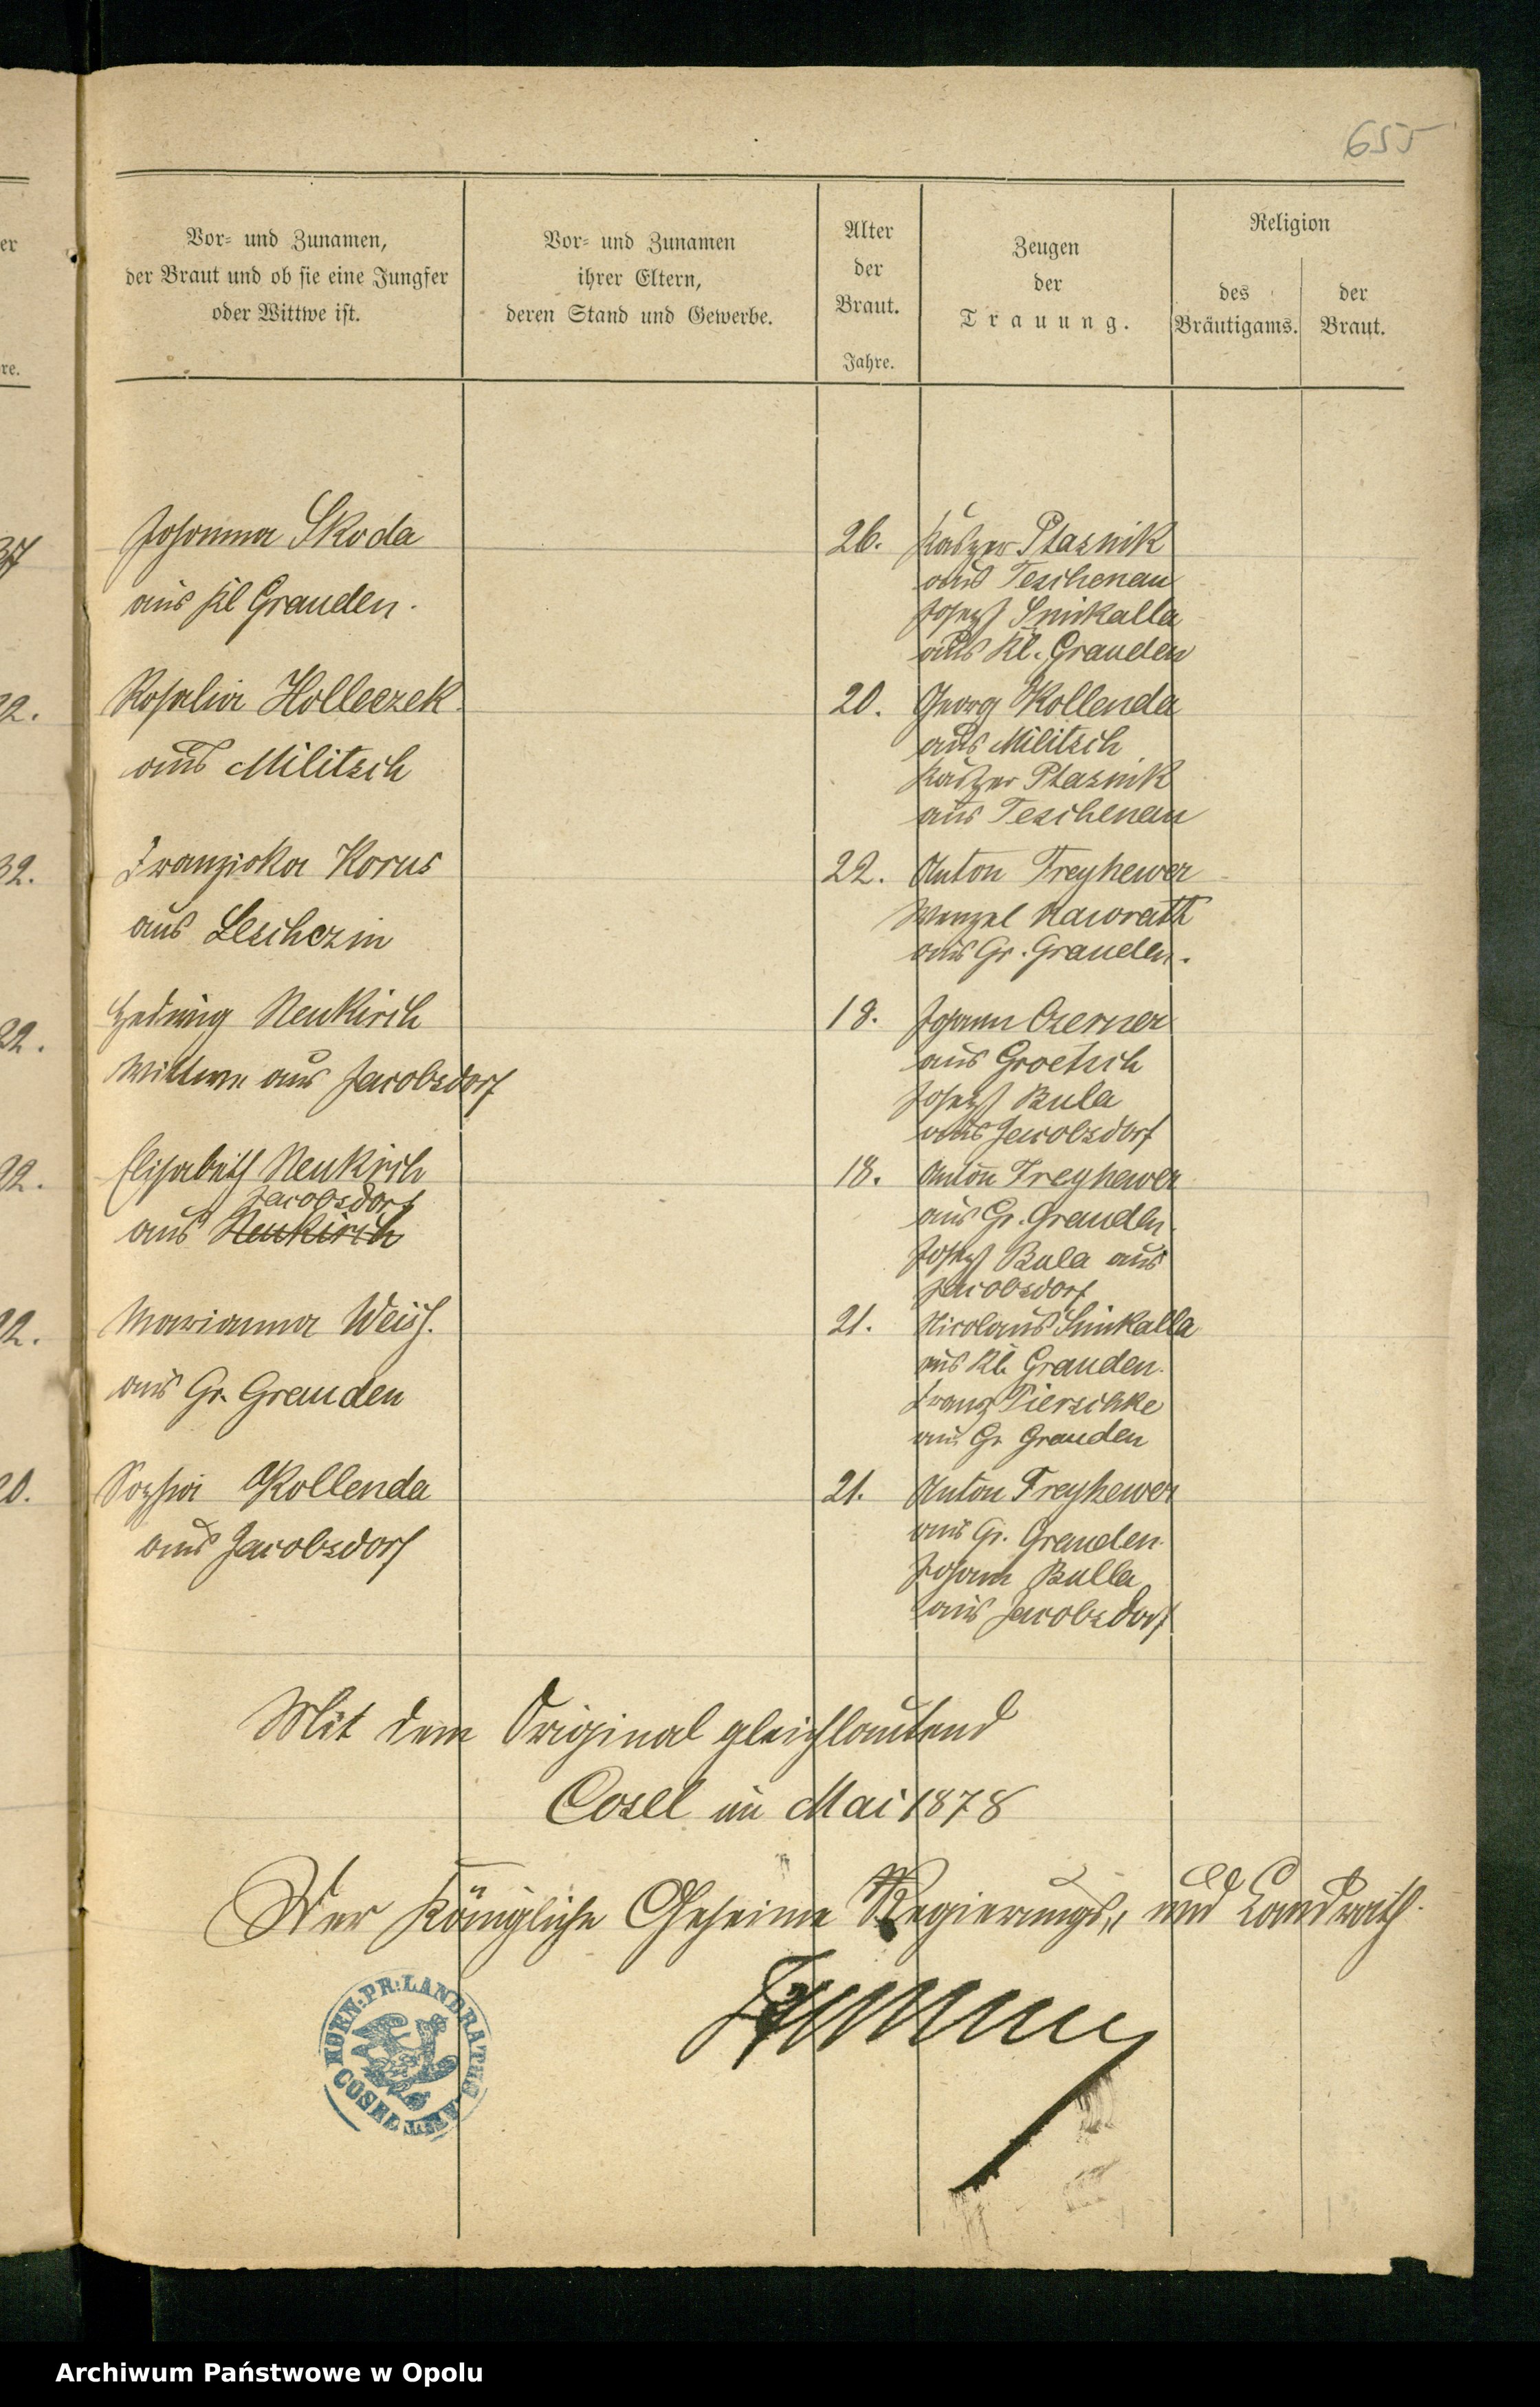 655
Vor- und Zunamen,
der Braut und ob sie eine Jungfer
oder Wittwe ist.
Vor- und Zunamen
ihrer Eltern,
deren Stand und Gewerbe.
Alter
der
Braut.
Jahre.
Zeugen
der
Trauung.
Religion
des
Bräutigams.
der
Braut.
er
re.
37
Johanna Skoda
aus Kl Grauden.
26.
Kasper Ptasnik
aus Teschenau
Josef Smikalla
aus Kl. Grauden
Rosalia Holleczek
aus Militsch
20.
Georg Kollenda
aus Militsch
Kasper Ptasnik
aus Teschenau
32.
Franziska Korus
aus Leschczin
22.
Anton Freyhewer
Wenzel Nawrath
aus Gr. Grauden.
Hedwig Neukirch
Wittwe aus Jacobsdorf
18.
Johann Czerner
aus Groetsch
Josef Bula
aus Jacobsdorf
Elisabeth Neukirch
Jacobsdorf
aus Neukirch
18.
Anton Freyhewer
aus Gr. Grauden.
Josef Bula aus
Jacobsdorf
Marianna Weiss.
aus Gr. Grauden
21.
Nicolaus Smikalla
aus Kl. Grauden.
Franz Pierschke
aus Gr Grauden
Sophia Kollenda
aus Jacobsdorf
21.
Anton Freyhewer
aus Gr. Grauden.
Johann Bulla
aus Jacobsdorf
Mit dem Original gleichlautend
Cosel im Mai 1878
Der Königliche Geheime Regierungs- und Landrath.
KOEN: PR: LANDRATHS AMT
COSEL
Archiwum Państwowe w Opolu